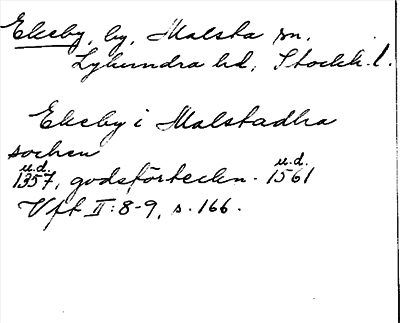 Ekeby, by, Malsta sn,
Lyhundra hd, Stockh. l.
Ekeby i Malstadha
sochen
u.d. u.d.
1357, godsförteckn. 1561
Vft II:8-9, s. 166.